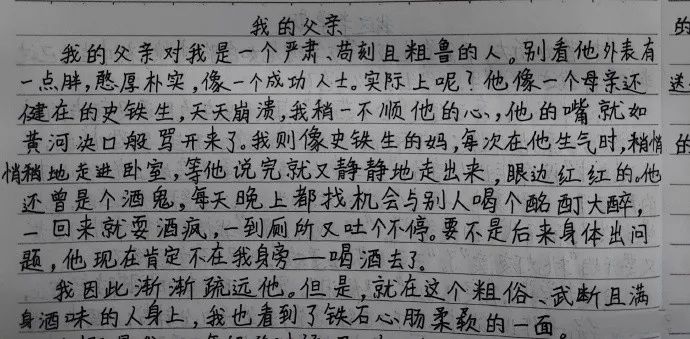 我的父亲
我的父亲对我是一个严肃、苛刻且粗鲁的人。别看他外表有
一点胖,憨厚朴实,像一个成功人士。实际上呢?他像一个母亲还
健在的史铁生,天天崩溃,我稍一不顺他的心,他的嘴就如
黄河决口般骂开来了。我则像史铁生的妈,每次在他生气时,稍悄
悄稍地走进卧室,等他说完就又静静地走出来,眼边红红的。他
还曾是个酒鬼,每天晚上都找机会与别人喝个酩酊大醉,
一回来就耍酒疯,一到厕所又吐个不停。要不是后来身体出问
题,他现在肯定不在我身旁——喝酒去了。
我因此渐渐疏远他。但是,就在这个粗俗、武断且满
身酒味的人身上,我也看到了铁石心肠柔软的一面。
的
的